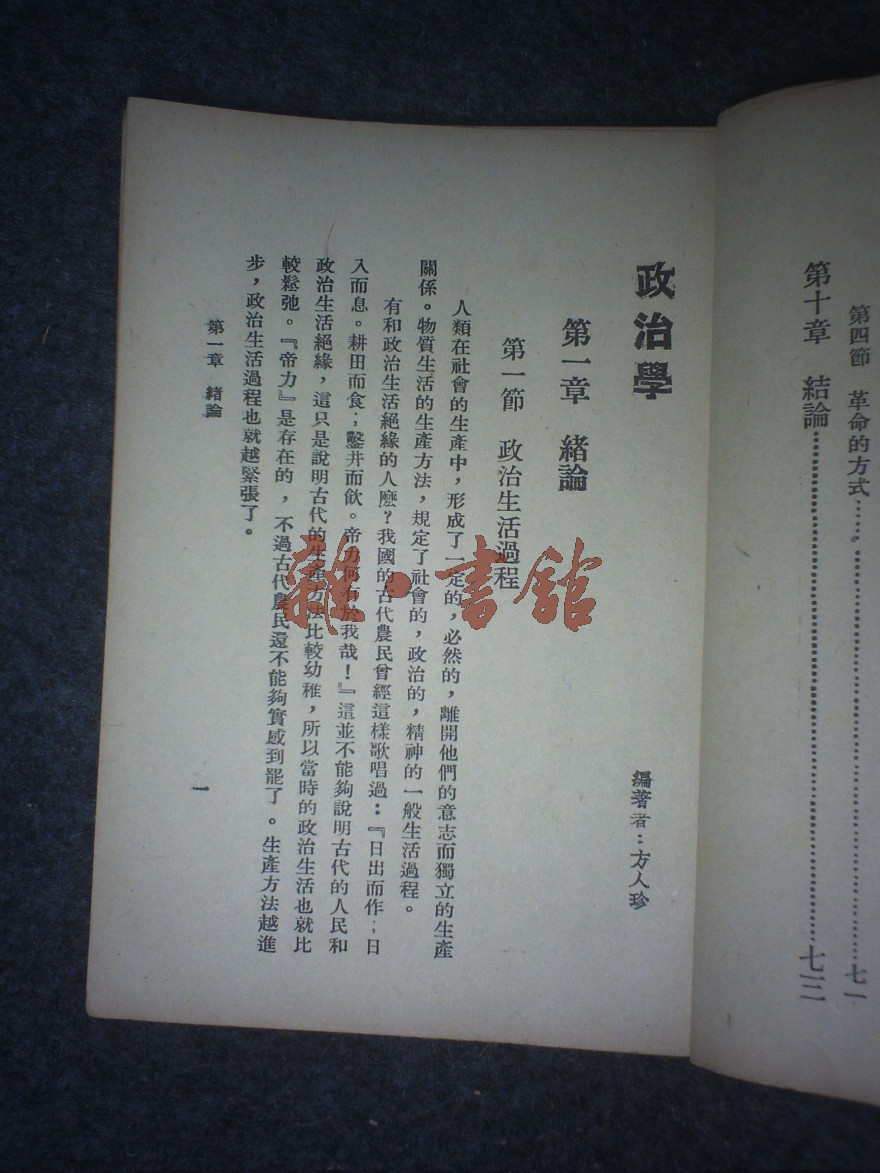 第四節　革命的方式……七一
第十章　結論……七三
政治學
編著者：方人珍
第一章　緒論
第一節　政治生活過程
人類在社會的生產中，形成了一定的，必然的，離開他們的意志而獨立的生產
關係。物質生活的生產方法，規定了社會的，政治的，精神的一般生活過程。
有和政治生活絕緣的人麽？我國的古代農民曾經這樣歌唱過：『日出而作；日
入而息。耕田而食；鑿井而飲。帝力何有於我哉！』這並不能夠說明古代的人民和
政治生活絕緣，這只是說明古代的生產方法比較幼稚，所以當時的政治生活也就比
較鬆弛。『帝力』是存在的，不過古代農民還不能夠實感到罷了。生產方法越進
步，政治生活過程也就越緊張了。
第一章　緒論
一
雜·書館